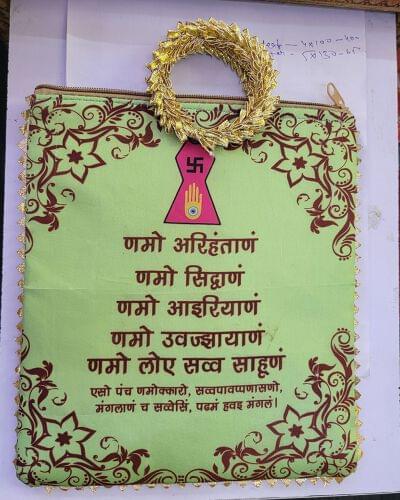 णमो अरिहंताणं
णमो सिद्धाणं
णमो आइरियाणं
णमो उवज्झायाणं
णमो लोए सव्व साहूणं
एसो पंच णमोक्कारो, सव्वपावप्पणासणो,
मंगलाणं च सव्वेसिं, पढमं हवइ मंगलं।